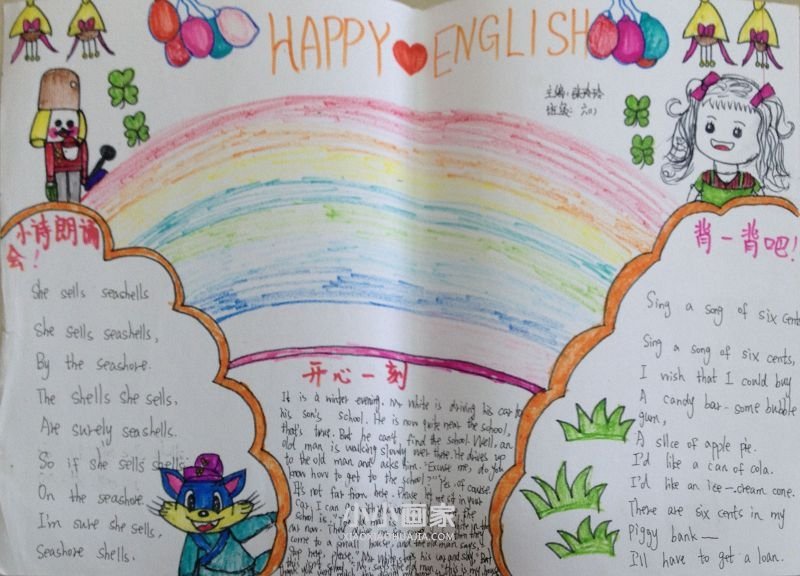 HAPPY ENGLISH
主编:
班级: 六
小诗朗诵
会!
She sells seashells
She sells seashells,
By the seashore.
The shells she sells,
Are surely seashells.
So if she sells shells
On the seashore
I'm sure she sells,
Seashore shells.
开心一刻
It is a winter evening. Mr White is driving his car to
his son's school. He is now quite near the school,
that's true. But he can't find the school. Well, an
old man is walking slowly over there. He drives up
to the old man and asks him. "Excuse me, do you
know how to get to the school?" "Yes, of course.
It's not far from here. Please let me sit in your
car. I can
school is."
car now.
come to a small house, and the old man says,
Stop here, please." Mr White stops his car and says, But
this isn't says the old man, this is my house
背一背吧!
Sing a song of six cents
Sing a song of six cents,
I wish that I could buy
A candy bar. some bubble
gum,
A slice of apple pie.
I'd like a can of cola.
I'd like an ice-cream cone.
There are six cents in my
piggy bank—
I'll have to get a loan.
小小画家
XIAOXIAOHUAJIA.COM